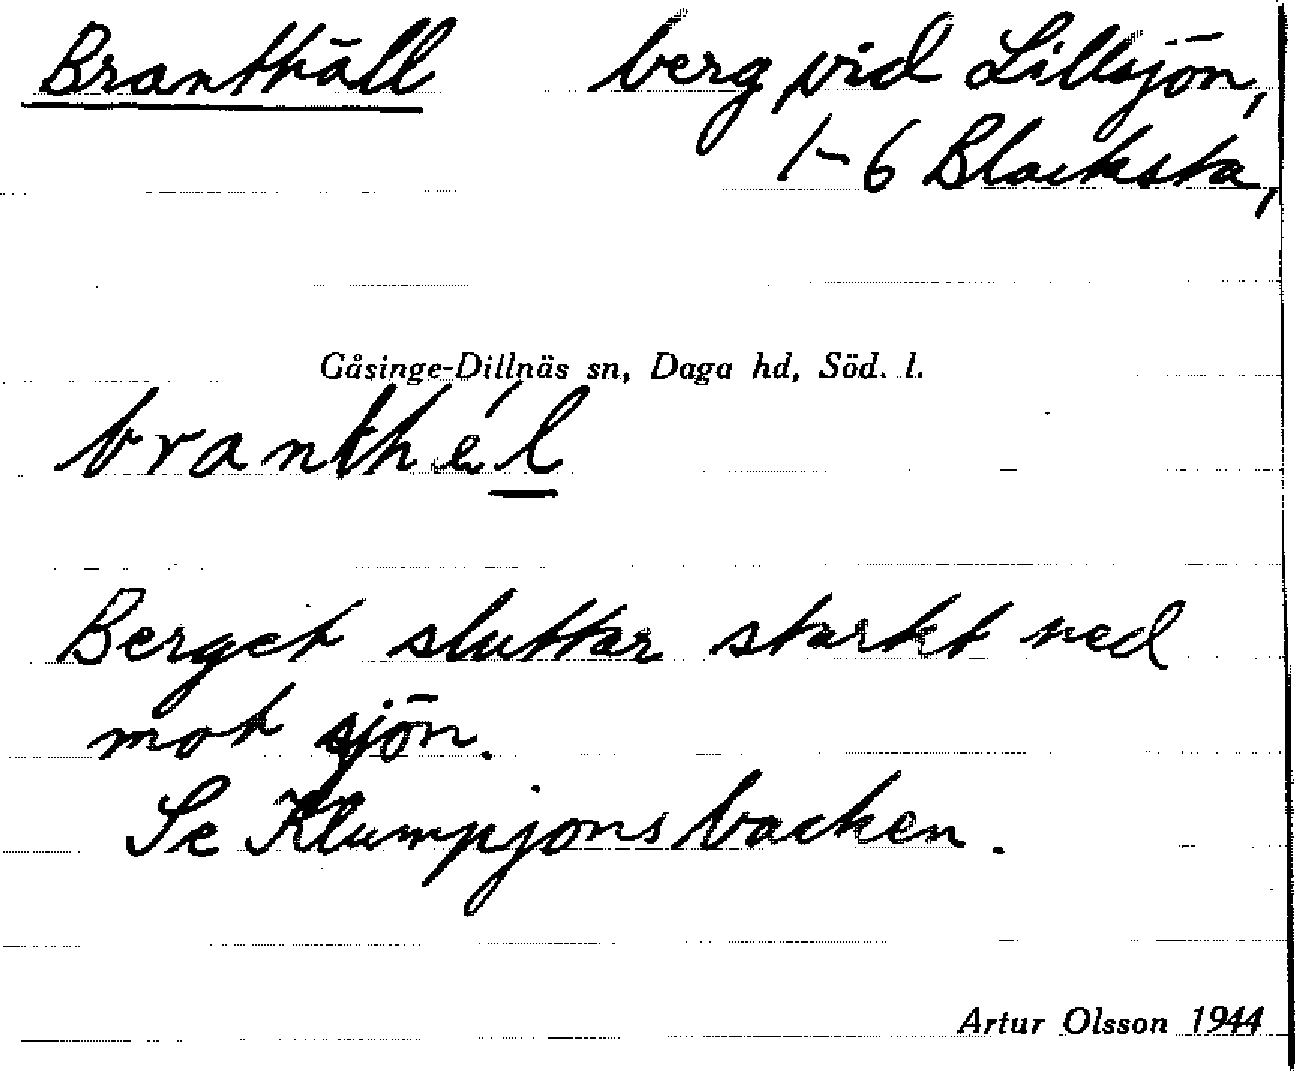 Branthäll berg vid Lillsjön,
1-6 Blacksta,
Gåsinge-Dillnäs sn, Daga hd, Söd. l.
branthél
Berget sluttar starkt ned
mot sjön.
Se Klumpjonsbacken.
Artur Olsson 1944